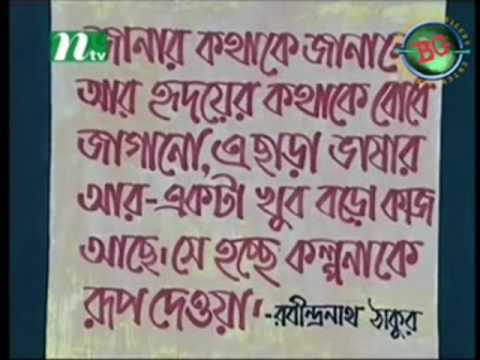 জানার কথাকে জানানো
আর হৃদয়ের কথাকে বোধে
জাগানো, এ ছাড়া ভাষার
আর-একটা খুব বড়ো কাজ
আছে। সে হচ্ছে কল্পনাকে
রূপ দেওয়া।
-রবীন্দ্রনাথ ঠাকুর
ntv
BG